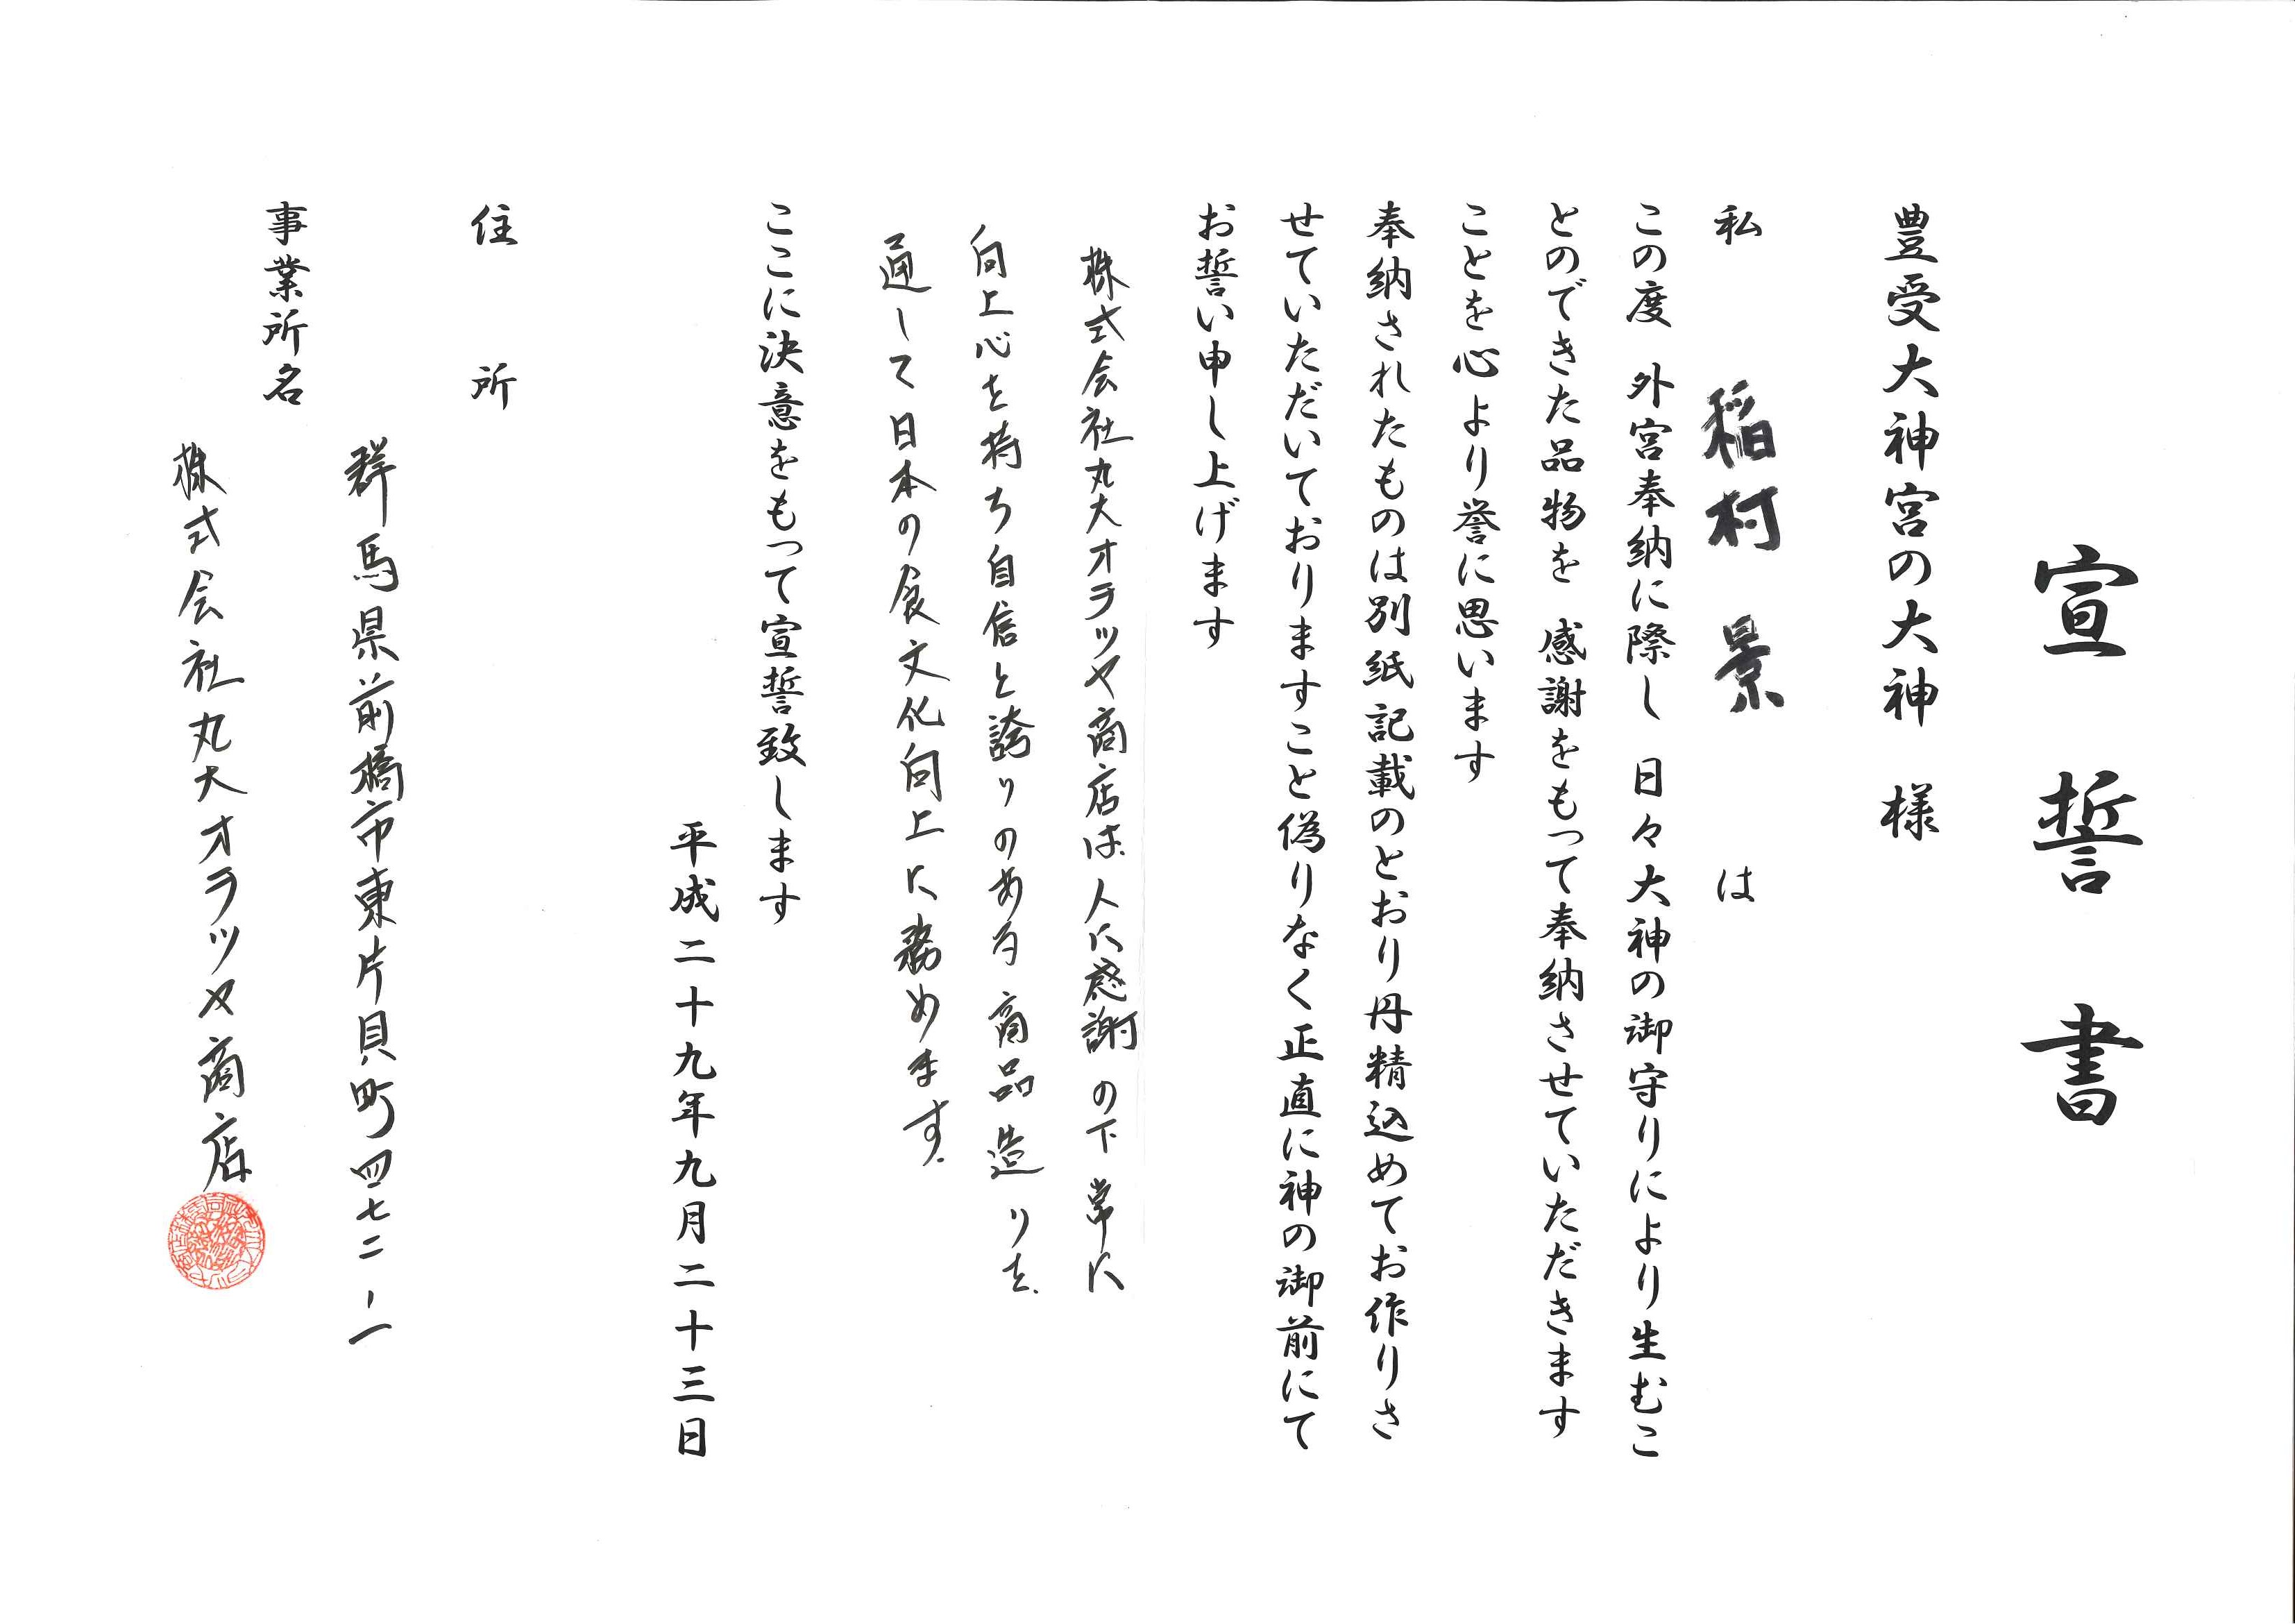 宣誓書
豊受大神宮の大神 様
私 稲村 景 は
この度 外宮奉納に際し 日々大神の御守りにより生むこ
とのできた品物を 感謝をもって奉納させていただきます
ことを心より誉に思います
奉納されたものは別紙記載のとおり丹精込めてお作りさ
せていただいておりますこと偽りなく正直に神の御前にて
お誓い申し上げます
株式会社丸大オラッツァ商店は人に感謝の下 常に
向上心を持ち自信と誇りのある商品造りを
通して日本の食文化向上に務めます。
ここに決意をもって宣誓致します
平成二十九年九月二十三日
住所
群馬県前橋市東片貝町四七二-一
事業所名
株式会社丸大オラッツァ商店